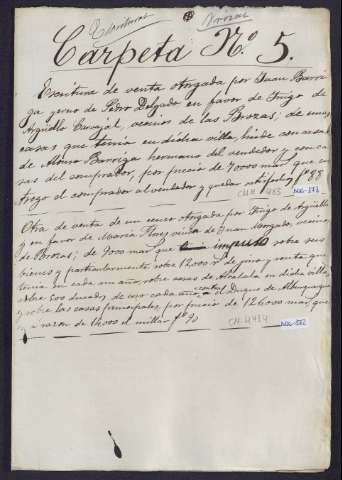 Escrituras Brozas
Carpeta Nº 5.
Escritura de venta otorgada por Juan Barri
ga yerno de Pedro Delgado en favor de Iñigo de
Argüello Carvajal, vecinos de las Brozas, de unas
casas que tenia en dicha villa, linde con casas
de Alonso Barriga hermano del vendedor y con ca
sas del comprador, por precio de 70000 mar que en
trego el comprador al vendedor y quedan
CM.H. 483
Otra de venta de un censo otorgada por Iñigo de Argüello
y en favor de Maria Flores viuda de Juan Morgado, vecinos
de Brozas; de 9000 mar que impuso sobre sus
bienes y particularmente sobre 12.000 de juro y renta que
tenia en cada un año, sobre casas de Alcabala en dicha villa,
sobre 500 ducados de censo cada año contra el Duque de Alburquerque
y sobre las casas principales, por precio de 126000 mar que
y a razon de 14000 el millar fº 90
CM.H 484